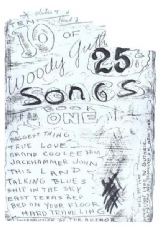 TEN
10 OF
Woody Guthrie
25 ¢
SONGS
BOOK
ONE
BIGGEST THING
TRUE LOVE
GRAND COOLEE DAM
JACKHAMMER JOHN
THIS LAND
TALKING BLUES
SHIP IN THE SKY
EAST TEXAS RED
BED ON YOUR FLOOR
HARD TRAVELING
INTRODUCTION BY THE AUTHOR